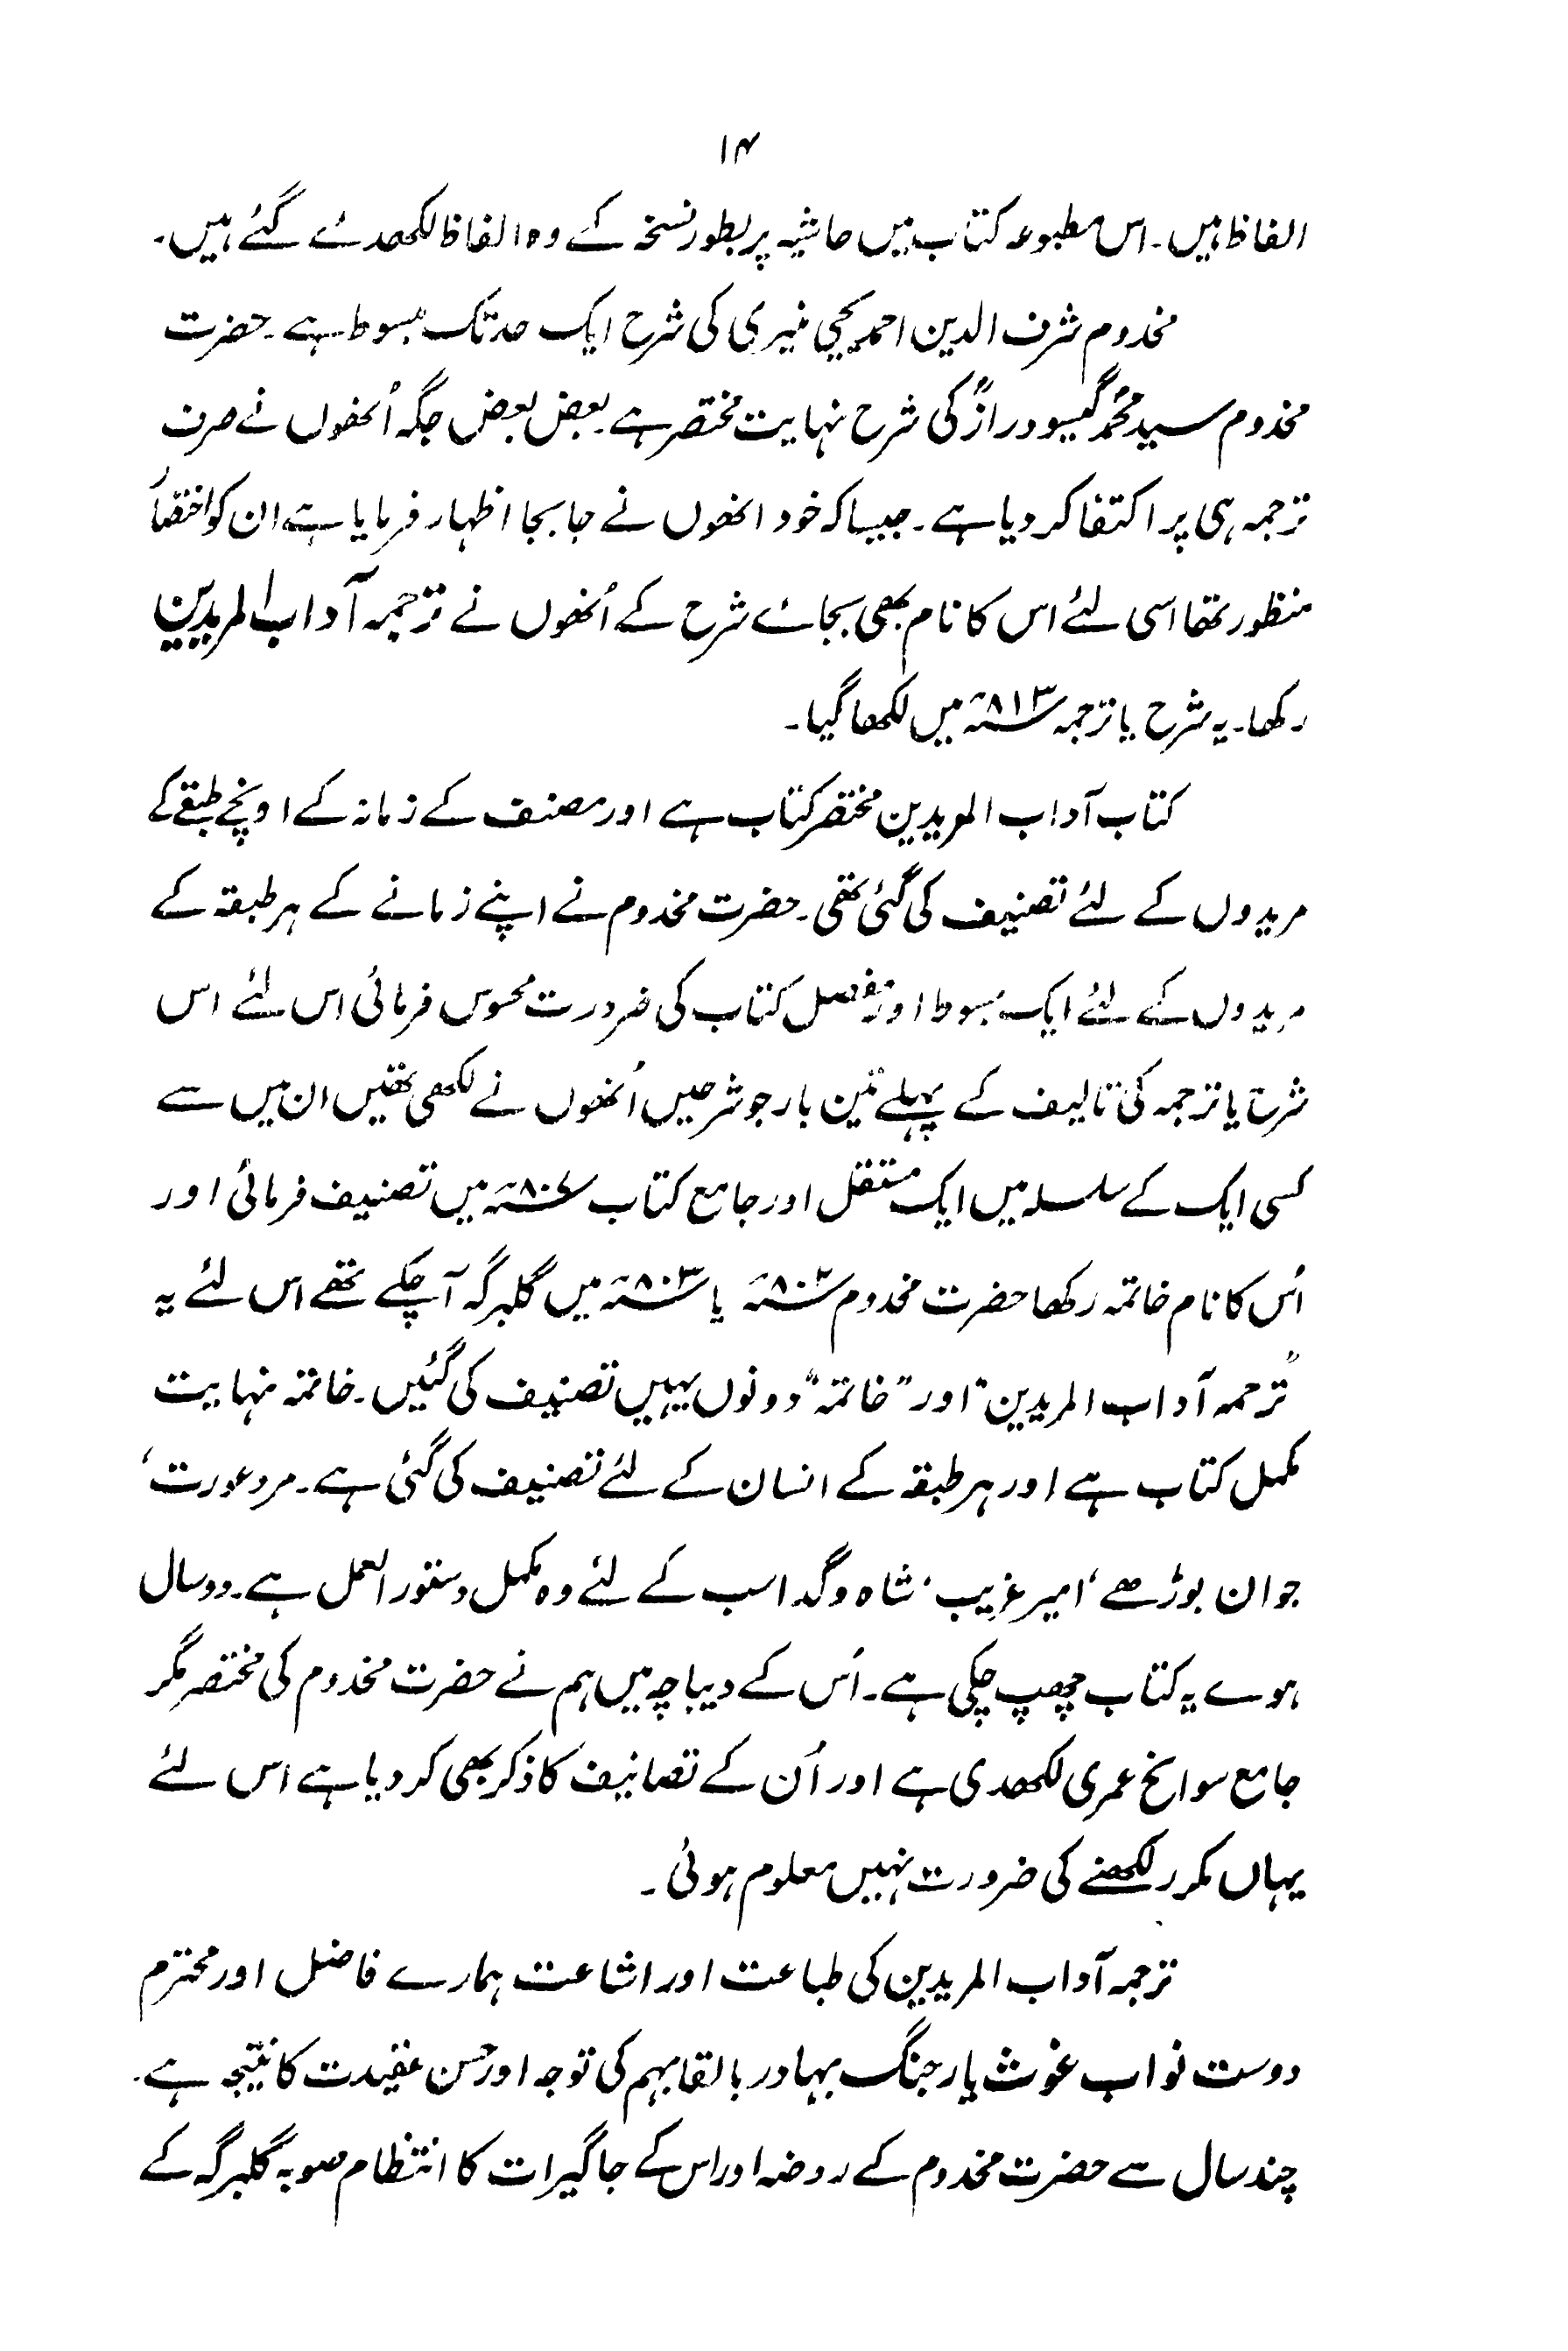 ۱۴
الفاظ ہیں۔ اس مطبوعہ کتاب میں حاشیہ پر بطور نسخہ کے وہ الفاظ لکھدئے گئے ہیں۔
مخدوم شرف الدین احمد یحییٰ منیری کی شرح ایک حد تک مبسوط ہے۔ حضرت
مخدوم سید محمد گیسو درازؒ کی شرح نہایت مختصر ہے۔ بعض بعض جگہ اُنھوں نے صرف
ترجمہ ہی پر اکتفا کر دیا ہے۔ جیسا کہ خود انھوں نے جا بجا اظہار فرمایا ہے ان کو اختصار
منظور تھا اسی لئے اس کا نام بھی بجائے شرح کے اُنھوں نے ترجمہ آداب المریدین
رکھا۔ یہ شرح یا ترجمہ ۸۱۳ھ میں لکھا گیا۔
کتاب آداب المریدین مختصر کتاب ہے اور مصنف کے زمانہ کے اونچے طبقے کے
مریدوں کے لئے تصنیف کی گئی تھی۔ حضرت مخدوم نے اپنے زمانے کے ہر طبقہ کے
مریدوں کے لئے ایک مبسوط اور مفصل کتاب کی ضرورت محسوس فرمائی اس لئے اس
شرح یا ترجمہ کی تالیف کے پہلے تین بار جو شرحیں اُنھوں نے لکھی تھیں ان میں سے
کسی ایک کے سلسلہ میں ایک مستقل اور جامع کتاب ۸۰۷ھ میں تصنیف فرمائی اور
اُس کا نام خاتمہ رکھا حضرت مخدوم ۸۰۲ھ یا ۸۰۳ھ میں گلبرگہ آ چکے تھے اس لئے یہ
”ترجمہ آداب المریدین“ اور ”خاتمہ“ دونوں یہیں تصنیف کی گئیں۔ خاتمہ نہایت
مکمل کتاب ہے اور ہر طبقہ کے انسان کے لئے تصنیف کی گئی ہے۔ مرد عورت‘
جوان بوڑھے‘ امیر غریب‘ شاہ و گدا سب کے لئے وہ مکمل دستور العمل ہے۔ دو سال
ہوے یہ کتاب چھپ چکی ہے۔ اُس کے دیباچہ میں ہم نے حضرت مخدوم کی مختصر مگر
جامع سوانح عمری لکھدی ہے اور اُن کے تصانیف کا ذکر بھی کر دیا ہے اس لئے
یہاں مکرر لکھنے کی ضرورت نہیں معلوم ہوئی۔
ترجمہ آداب المریدین کی طباعت اور اشاعت ہمارے فاضل اور محترم
دوست نواب غوث یار جنگ بہادر بالقابہم کی توجہ اور حسن عقیدت کا نتیجہ ہے۔
چند سال سے حضرت مخدوم کے روضہ اور اس کے جاگیرات کا انتظام صوبہ گلبرگہ کے